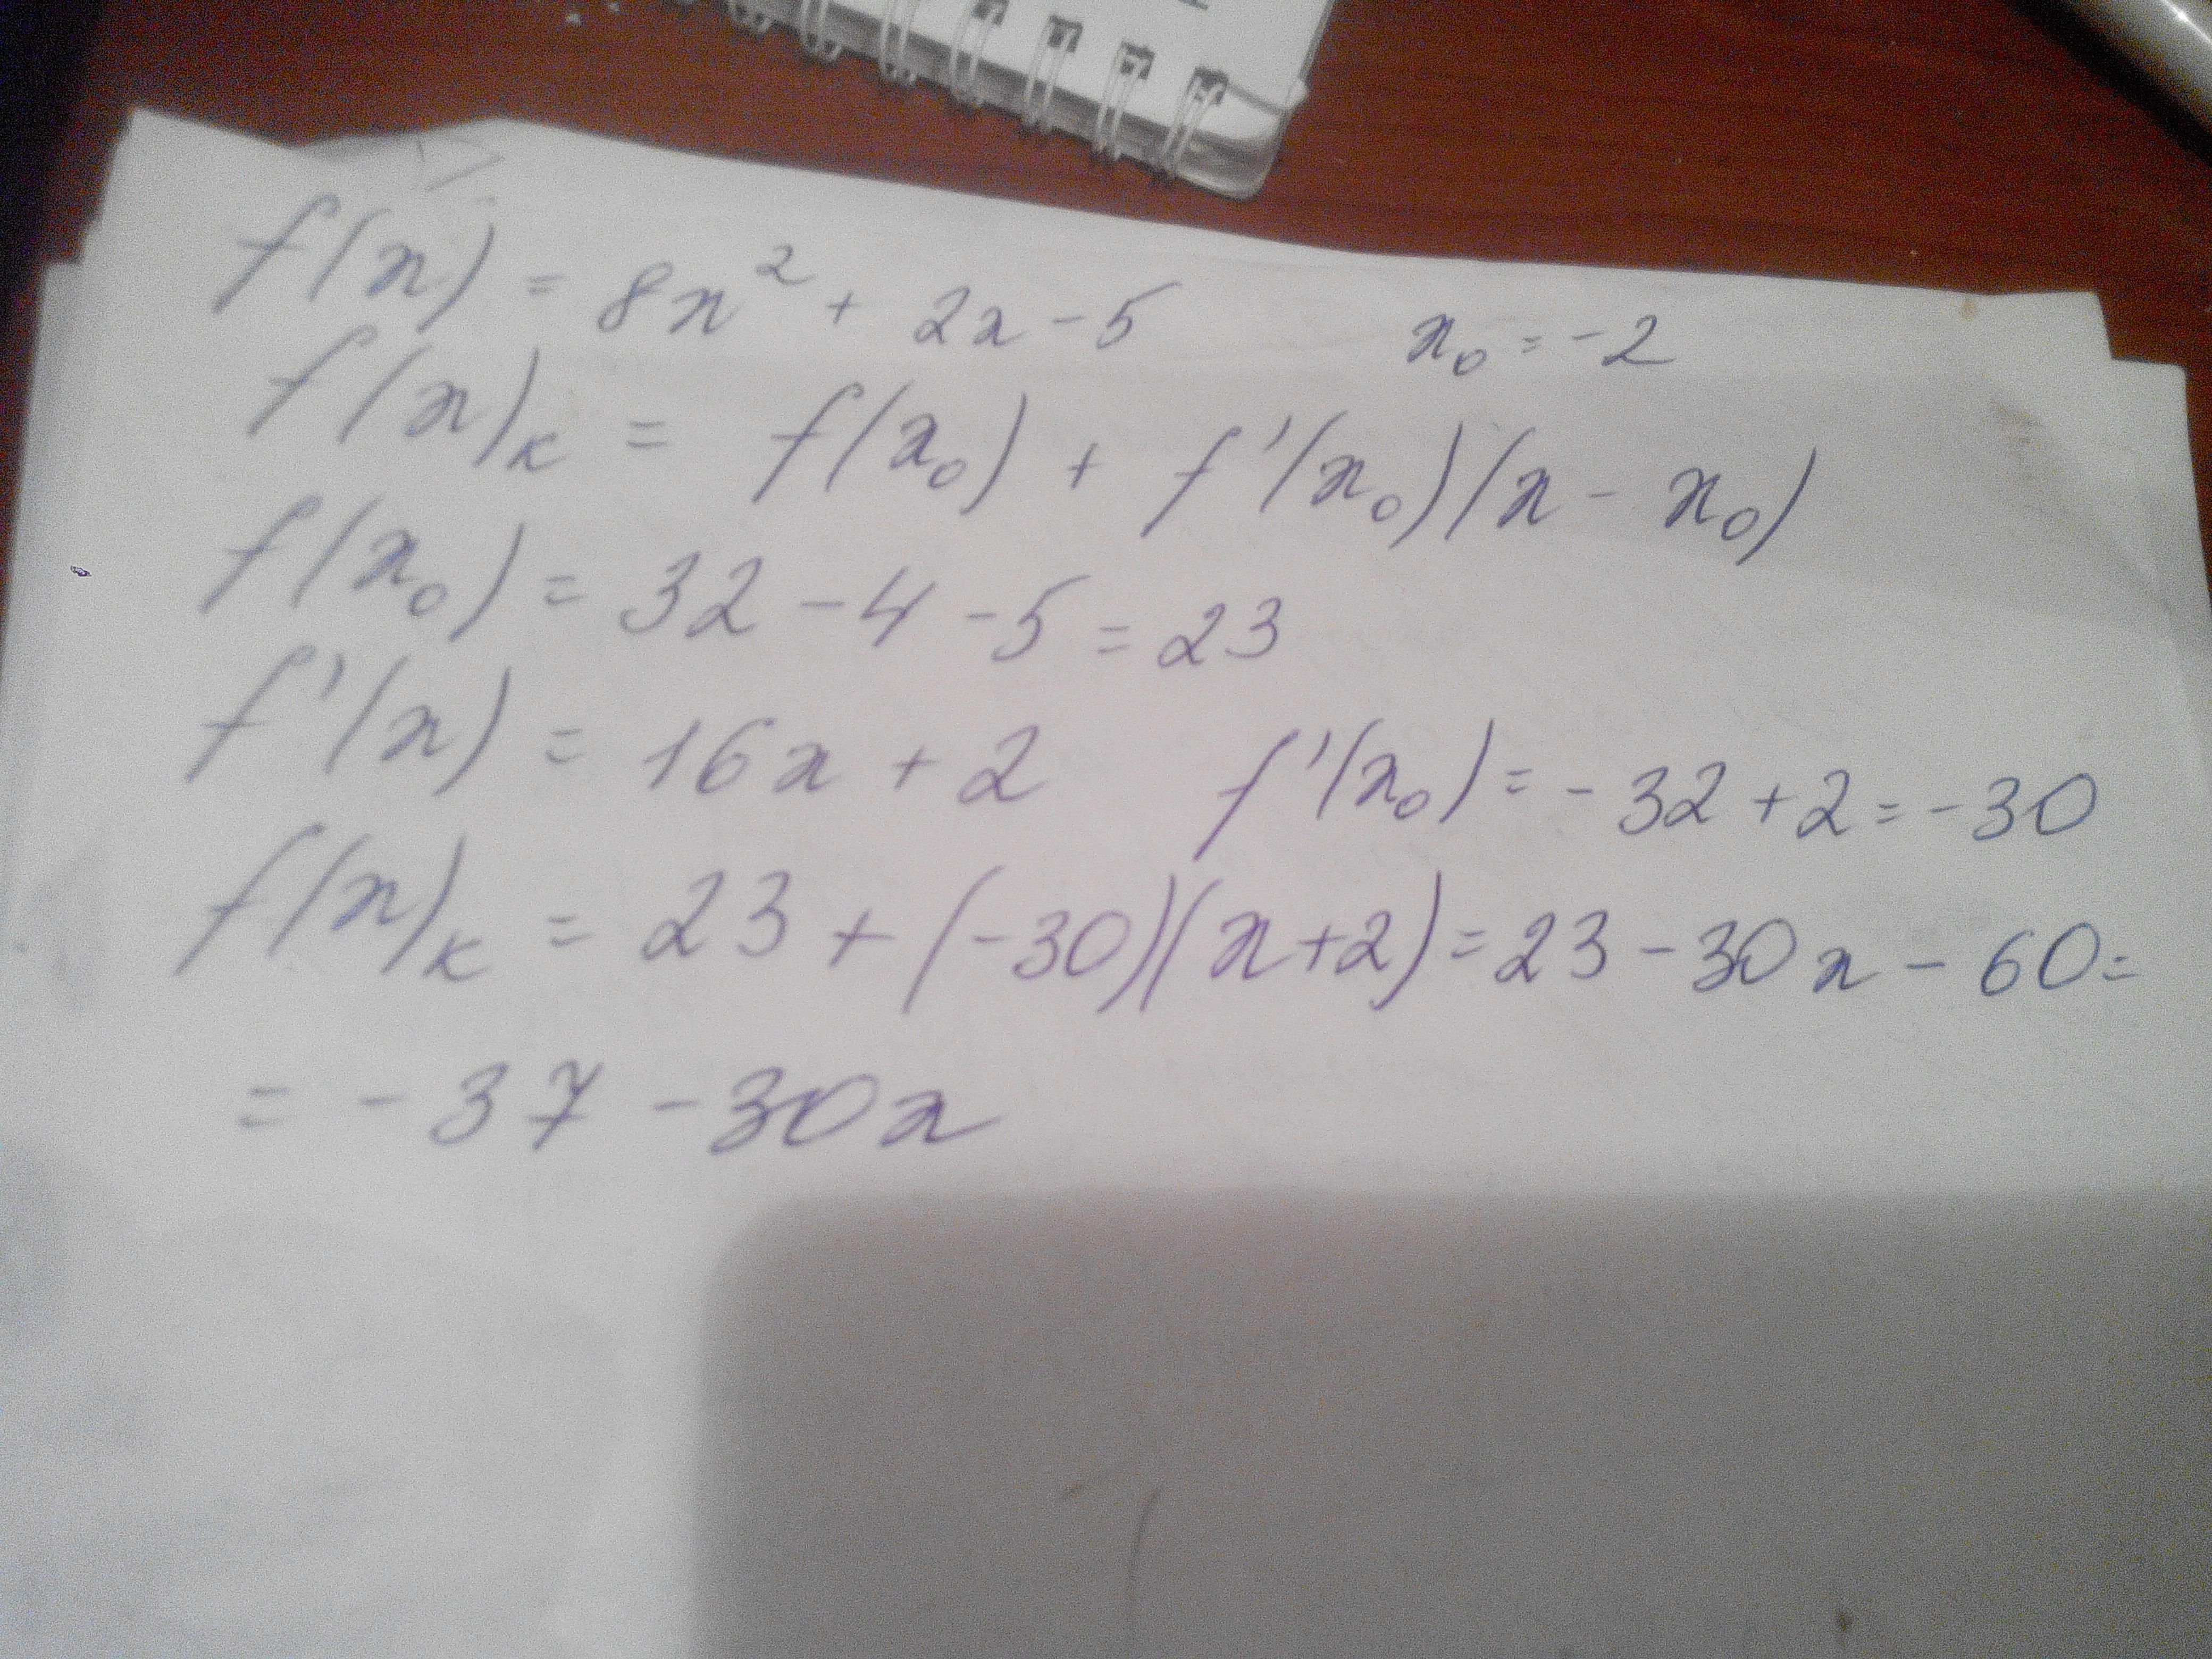 f(x) = 8x² + 2x - 5 x₀ = -2
f(x)ₖ = f(x₀) + f'(x₀)(x - x₀)
f(x₀) = 32 - 4 - 5 = 23
f'(x) = 16x + 2 f'(x₀) = - 32 + 2 = -30
f(x)ₖ = 23 + (-30)(x+2) = 23 - 30x - 60 =
= - 37 - 30x